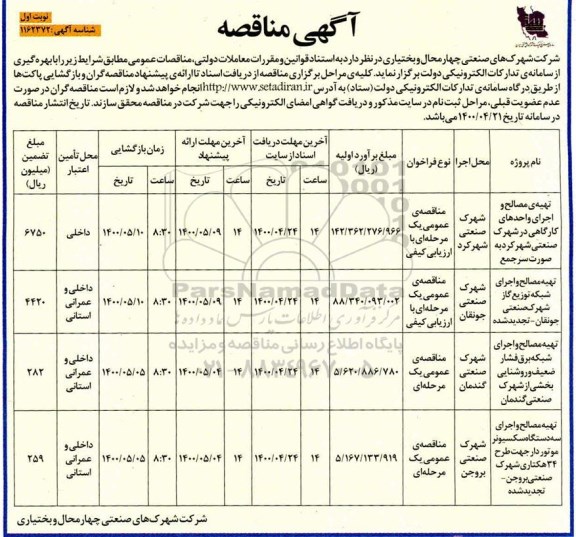 آگهی مناقصه
نوبت اول
شناسه آگهی: ۱۱۶۲۳۷۲
شرکت شهرک‌های صنعتی چهارمحال و بختیاری در نظر دارد به استناد قوانین و مقررات معاملات دولتی، مناقصات عمومی مطابق شرایط زیر را با بهره‌گیری
از سامانه‌ی تدارکات الکترونیکی دولت برگزار نماید. کلیه‌ی مراحل برگزاری مناقصه از دریافت اسناد تا ارائه‌ی پیشنهاد مناقصه‌گران و بازگشایی پاکت‌ها
از طریق درگاه سامانه‌ی تدارکات الکترونیکی دولت (ستاد) به آدرس http://www.setadiran.ir انجام خواهد شد و لازم است مناقصه‌گران در صورت
عدم عضویت قبلی، مراحل ثبت نام در سایت مذکور و دریافت گواهی امضای الکترونیکی را جهت شرکت در مناقصه محقق سازند. تاریخ انتشار مناقصه
در سامانه تاریخ ۱۴۰۰/۰۴/۲۱ می‌باشد.
نام پروژه | محل اجرا | نوع فراخوان | مبلغ برآورد اولیه (ریال) | آخرین مهلت دریافت اسناد از سایت | آخرین مهلت ارائه پیشنهاد | زمان بازگشایی | محل تأمین اعتبار | مبلغ تضمین (میلیون ریال)
ساعت | تاریخ | ساعت | تاریخ | ساعت | تاریخ
تهیه‌ی مصالح و اجرای واحدهای کارگاهی در شهرک صنعتی شهرکرد به صورت سرجمع | شهرک صنعتی شهرکرد | مناقصه‌ی عمومی یک مرحله‌ای با ارزیابی کیفی | ۱۴۲/۳۶۲/۲۷۶/۹۶۶ | ۱۴ | ۱۴۰۰/۰۴/۲۴ | ۱۴ | ۱۴۰۰/۰۵/۰۹ | ۸:۳۰ | ۱۴۰۰/۰۵/۱۰ | داخلی | ۶۷۵۰
تهیه مصالح و اجرای شبکه توزیع گاز شهرک صنعتی جونقان - تجدید شده | شهرک صنعتی جونقان | مناقصه‌ی عمومی یک مرحله‌ای با ارزیابی کیفی | ۸۸/۳۴۰/۰۹۳/۰۰۲ | ۱۴ | ۱۴۰۰/۰۴/۲۴ | ۱۴ | ۱۴۰۰/۰۵/۰۹ | ۸:۳۰ | ۱۴۰۰/۰۵/۱۰ | داخلی و عمرانی استانی | ۴۴۲۰
تهیه مصالح و اجرای شبکه برق فشار ضعیف و روشنایی بخشی از شهرک صنعتی گندمان | شهرک صنعتی گندمان | مناقصه‌ی عمومی یک مرحله‌ای | ۵/۶۲۰/۸۸۶/۷۸۰ | ۱۴ | ۱۴۰۰/۰۴/۲۴ | ۱۴ | ۱۴۰۰/۰۵/۰۴ | ۸:۳۰ | ۱۴۰۰/۰۵/۰۵ | داخلی و عمرانی استانی | ۲۸۲
تهیه مصالح و اجرای سه دستگاه سکسیونر موتور دار جهت طرح ۳۴ هکتاری شهرک صنعتی بروجن - تجدید شده | شهرک صنعتی بروجن | مناقصه‌ی عمومی یک مرحله‌ای | ۵/۱۶۷/۱۳۳/۹۱۹ | ۱۴ | ۱۴۰۰/۰۴/۲۴ | ۱۴ | ۱۴۰۰/۰۵/۰۴ | ۸:۳۰ | ۱۴۰۰/۰۵/۰۵ | داخلی و عمرانی استانی | ۲۵۹
ParsNamadData
پایگاه اطلاع رسانی مناقصه و مزایده
۰۲۱-۸۸۳۴۹۶۷۰-۵
شرکت شهرک‌های صنعتی چهارمحال و بختیاری